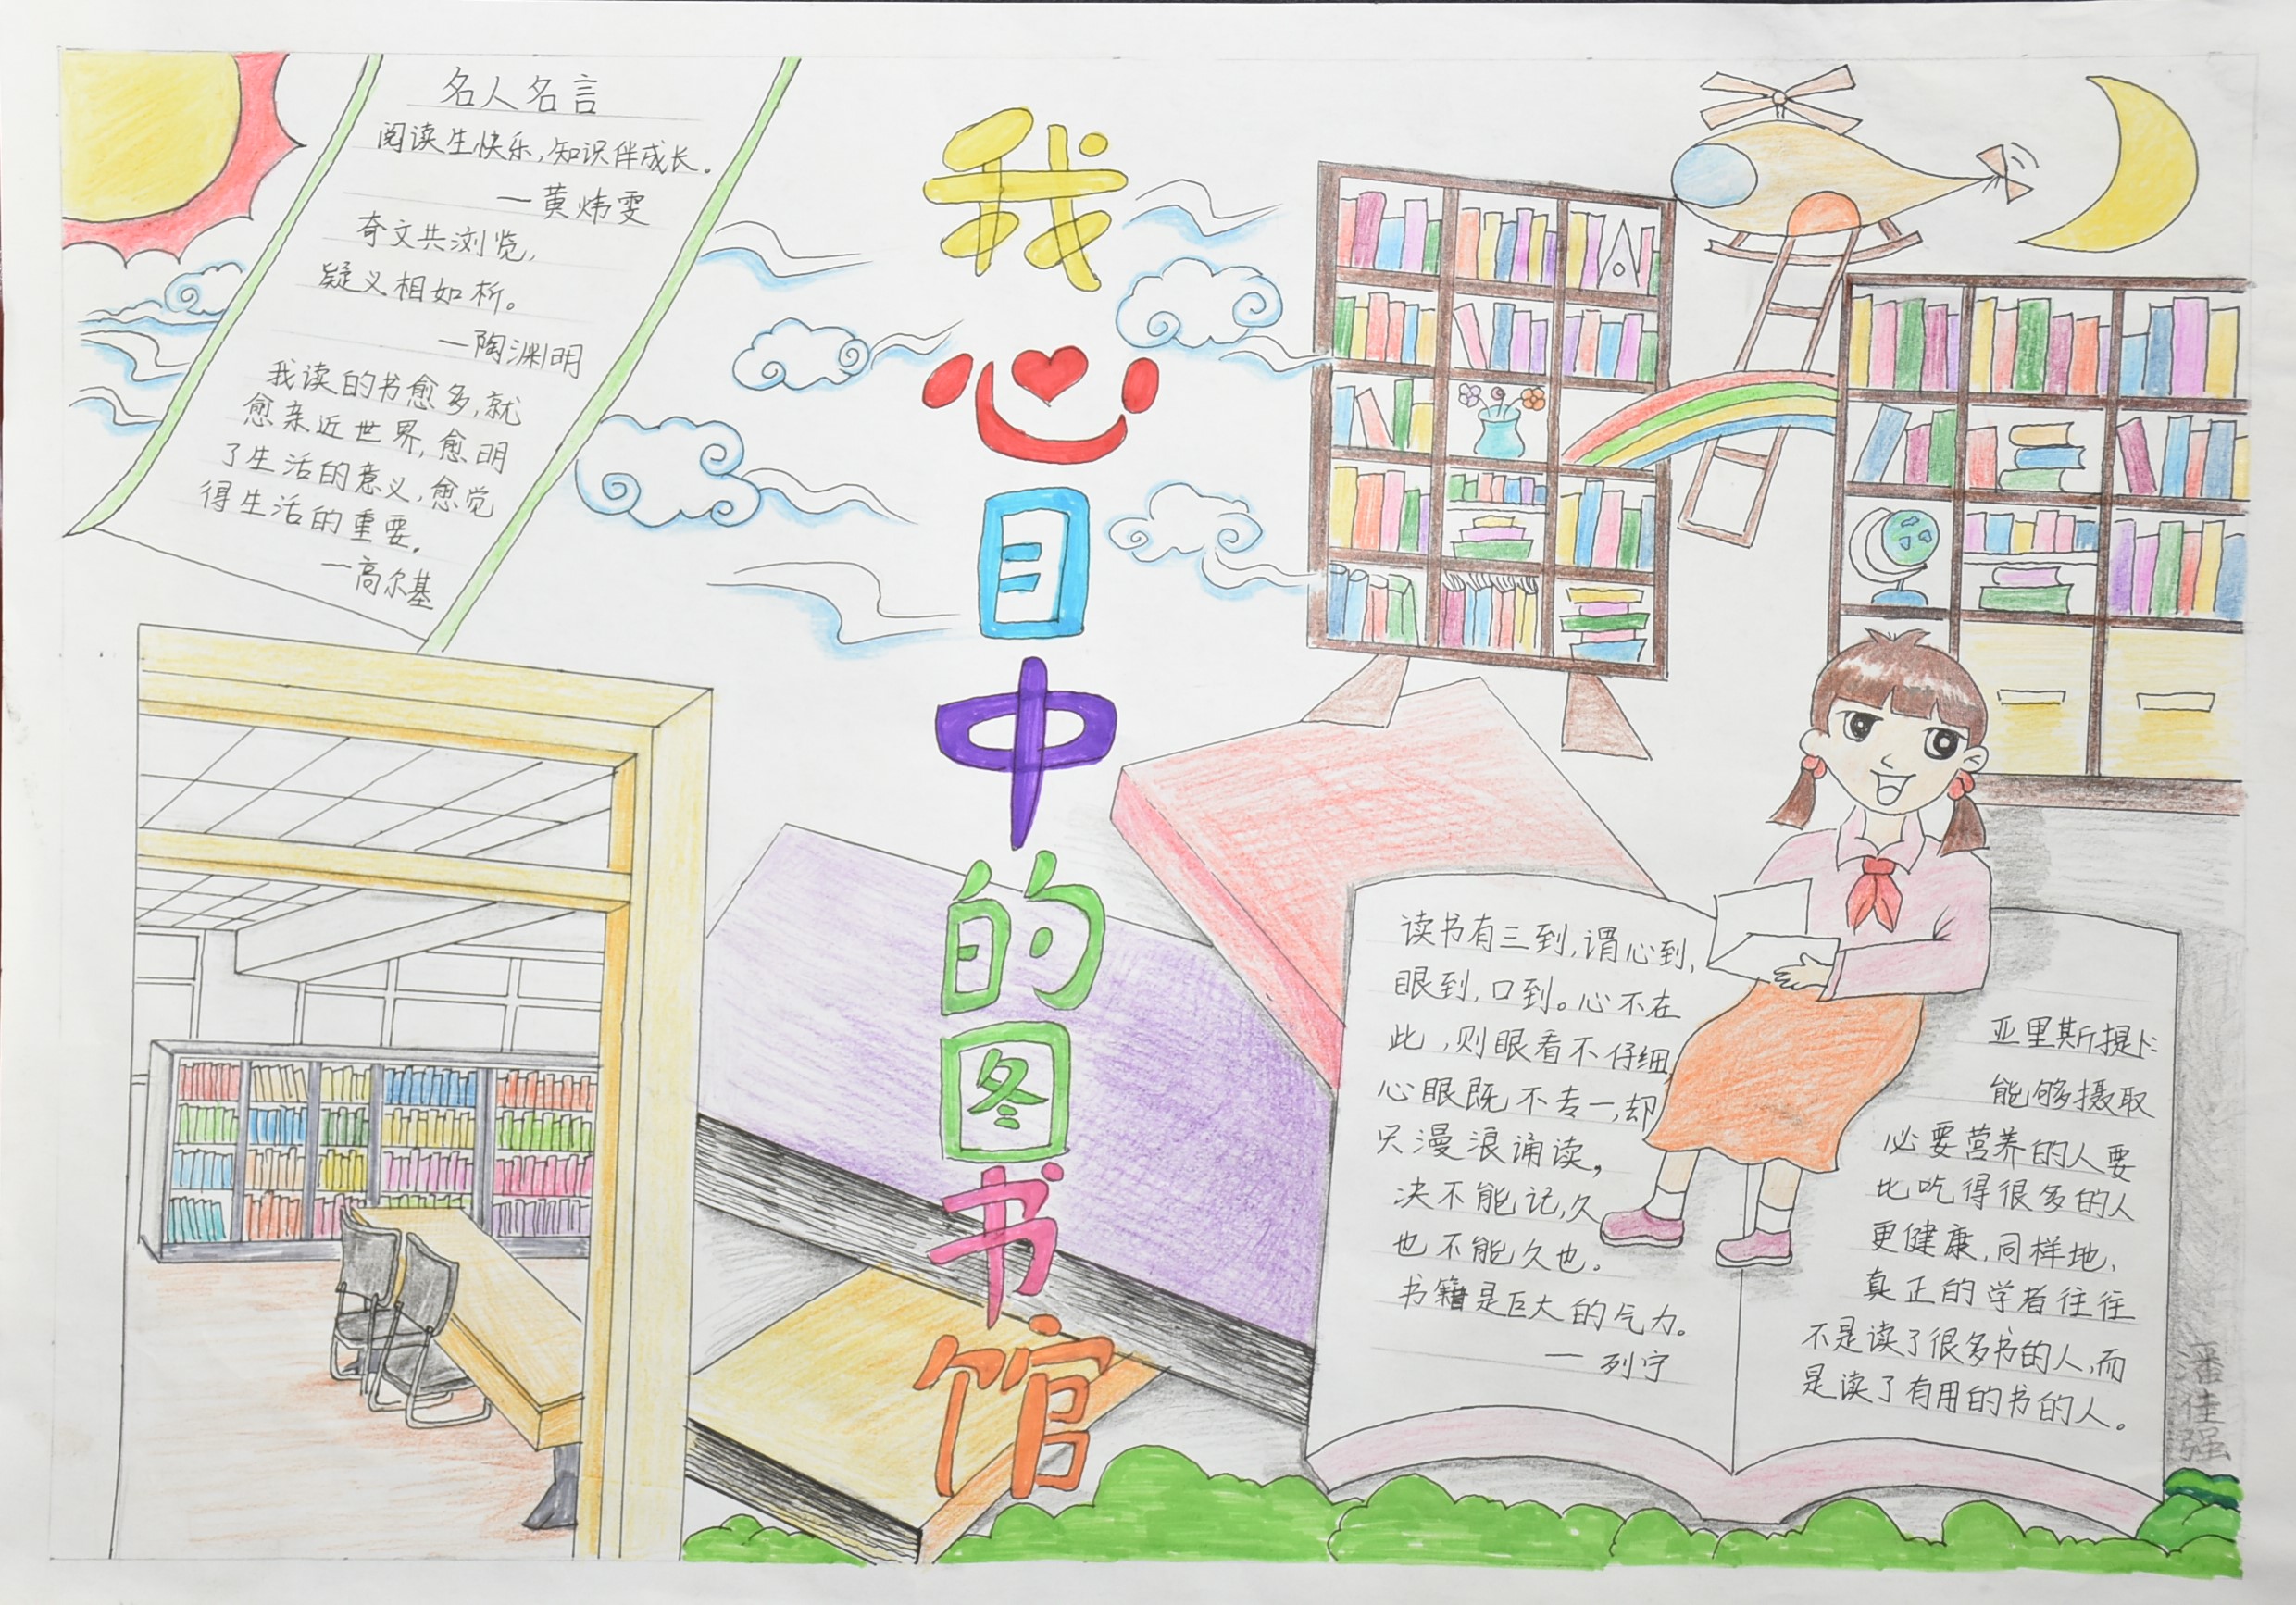 名人名言
阅读生快乐,知识伴成长。
—黄炜雯
奇文共浏览,
疑义相如析。
—陶渊明
我读的书愈多,就
愈亲近世界,愈明
了生活的意义,愈觉
得生活的重要。
—高尔基
我心目中的图书馆
读书有三到,谓心到,
眼到,口到。心不在
此,则眼看不仔细,
心眼既不专一,却
只漫浪诵读,
决不能记,久
也不能久也。
书籍是巨大的气力。
—列宁
亚里斯提卜:
能够摄取
必要营养的人要
比吃得很多的人
更健康,同样地,
真正的学者往往
不是读了很多书的人,而
是读了有用的书的人。
潘佳强